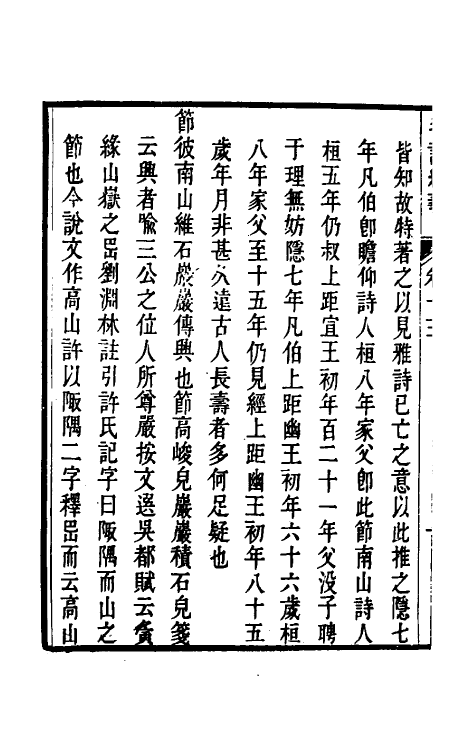 皆知故特著之以見雅詩已亡之意以此推之隱七
年凡伯卽瞻仰詩人桓八年家父卽此節南山詩人
桓五年仍叔上距宣王初年百二十一年父没子聘
于理無妨隱七年凡伯上距幽王初年六十六歲桓
八年家父至十五年仍見經上距幽王初年八十五
歲年月非甚久遠古人長壽者多何足疑也
節彼南山維石巖巖傳興也節高峻皃巖巖積石皃箋
云興者喻三公之位人所尊嚴按文選吳都賦云夤
緣山嶽之岊劉淵林註引許氏記字曰陬隅而山之
節也今說文作高山許以陬隅二字釋岊而云高山